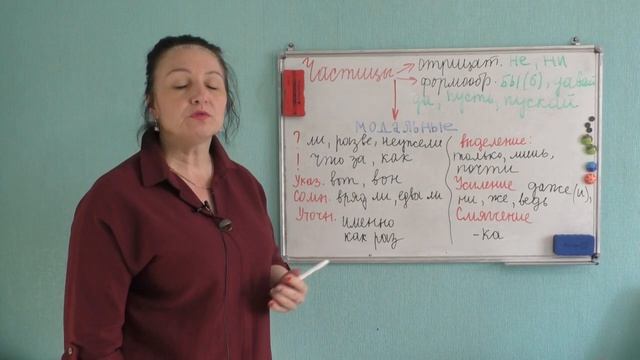 Частицы → отрицат. не, ни
формообр. бы(б), давай
да, пусть, пускай
модальные
? ли, разве, неужели
! что за, как
Указ. вот, вон
Сомн. вряд ли, едва ли
Уточн. именно
как раз
Выделение:
только, лишь,
почти
Усиление даже(и),
ни, же, ведь
Смягчение
-ка